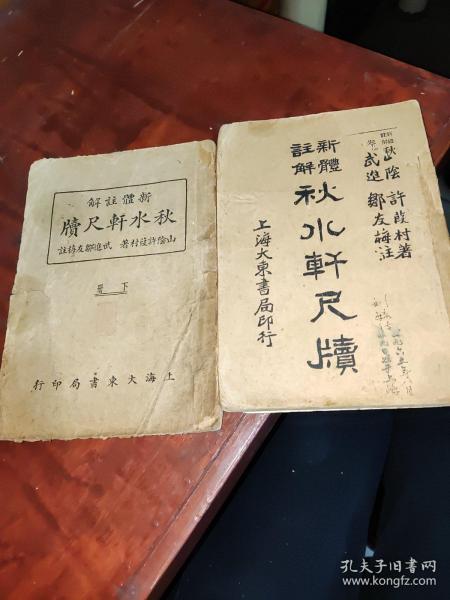 新體註解
秋水軒尺牘
山陰許葭村著 武進鄒友梅註
下冊
上海大東書局印行
新體
註解
秋水軒尺牘
上海大東書局印行
山陰 許葭村著
武進 鄒友梅註
孔夫子旧书网
www.kongfz.com